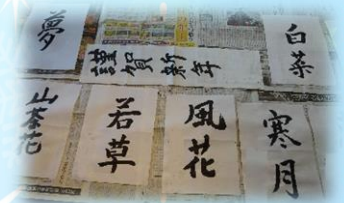 夢
謹賀新年
白菜
山茶花
若草
風花
寒月